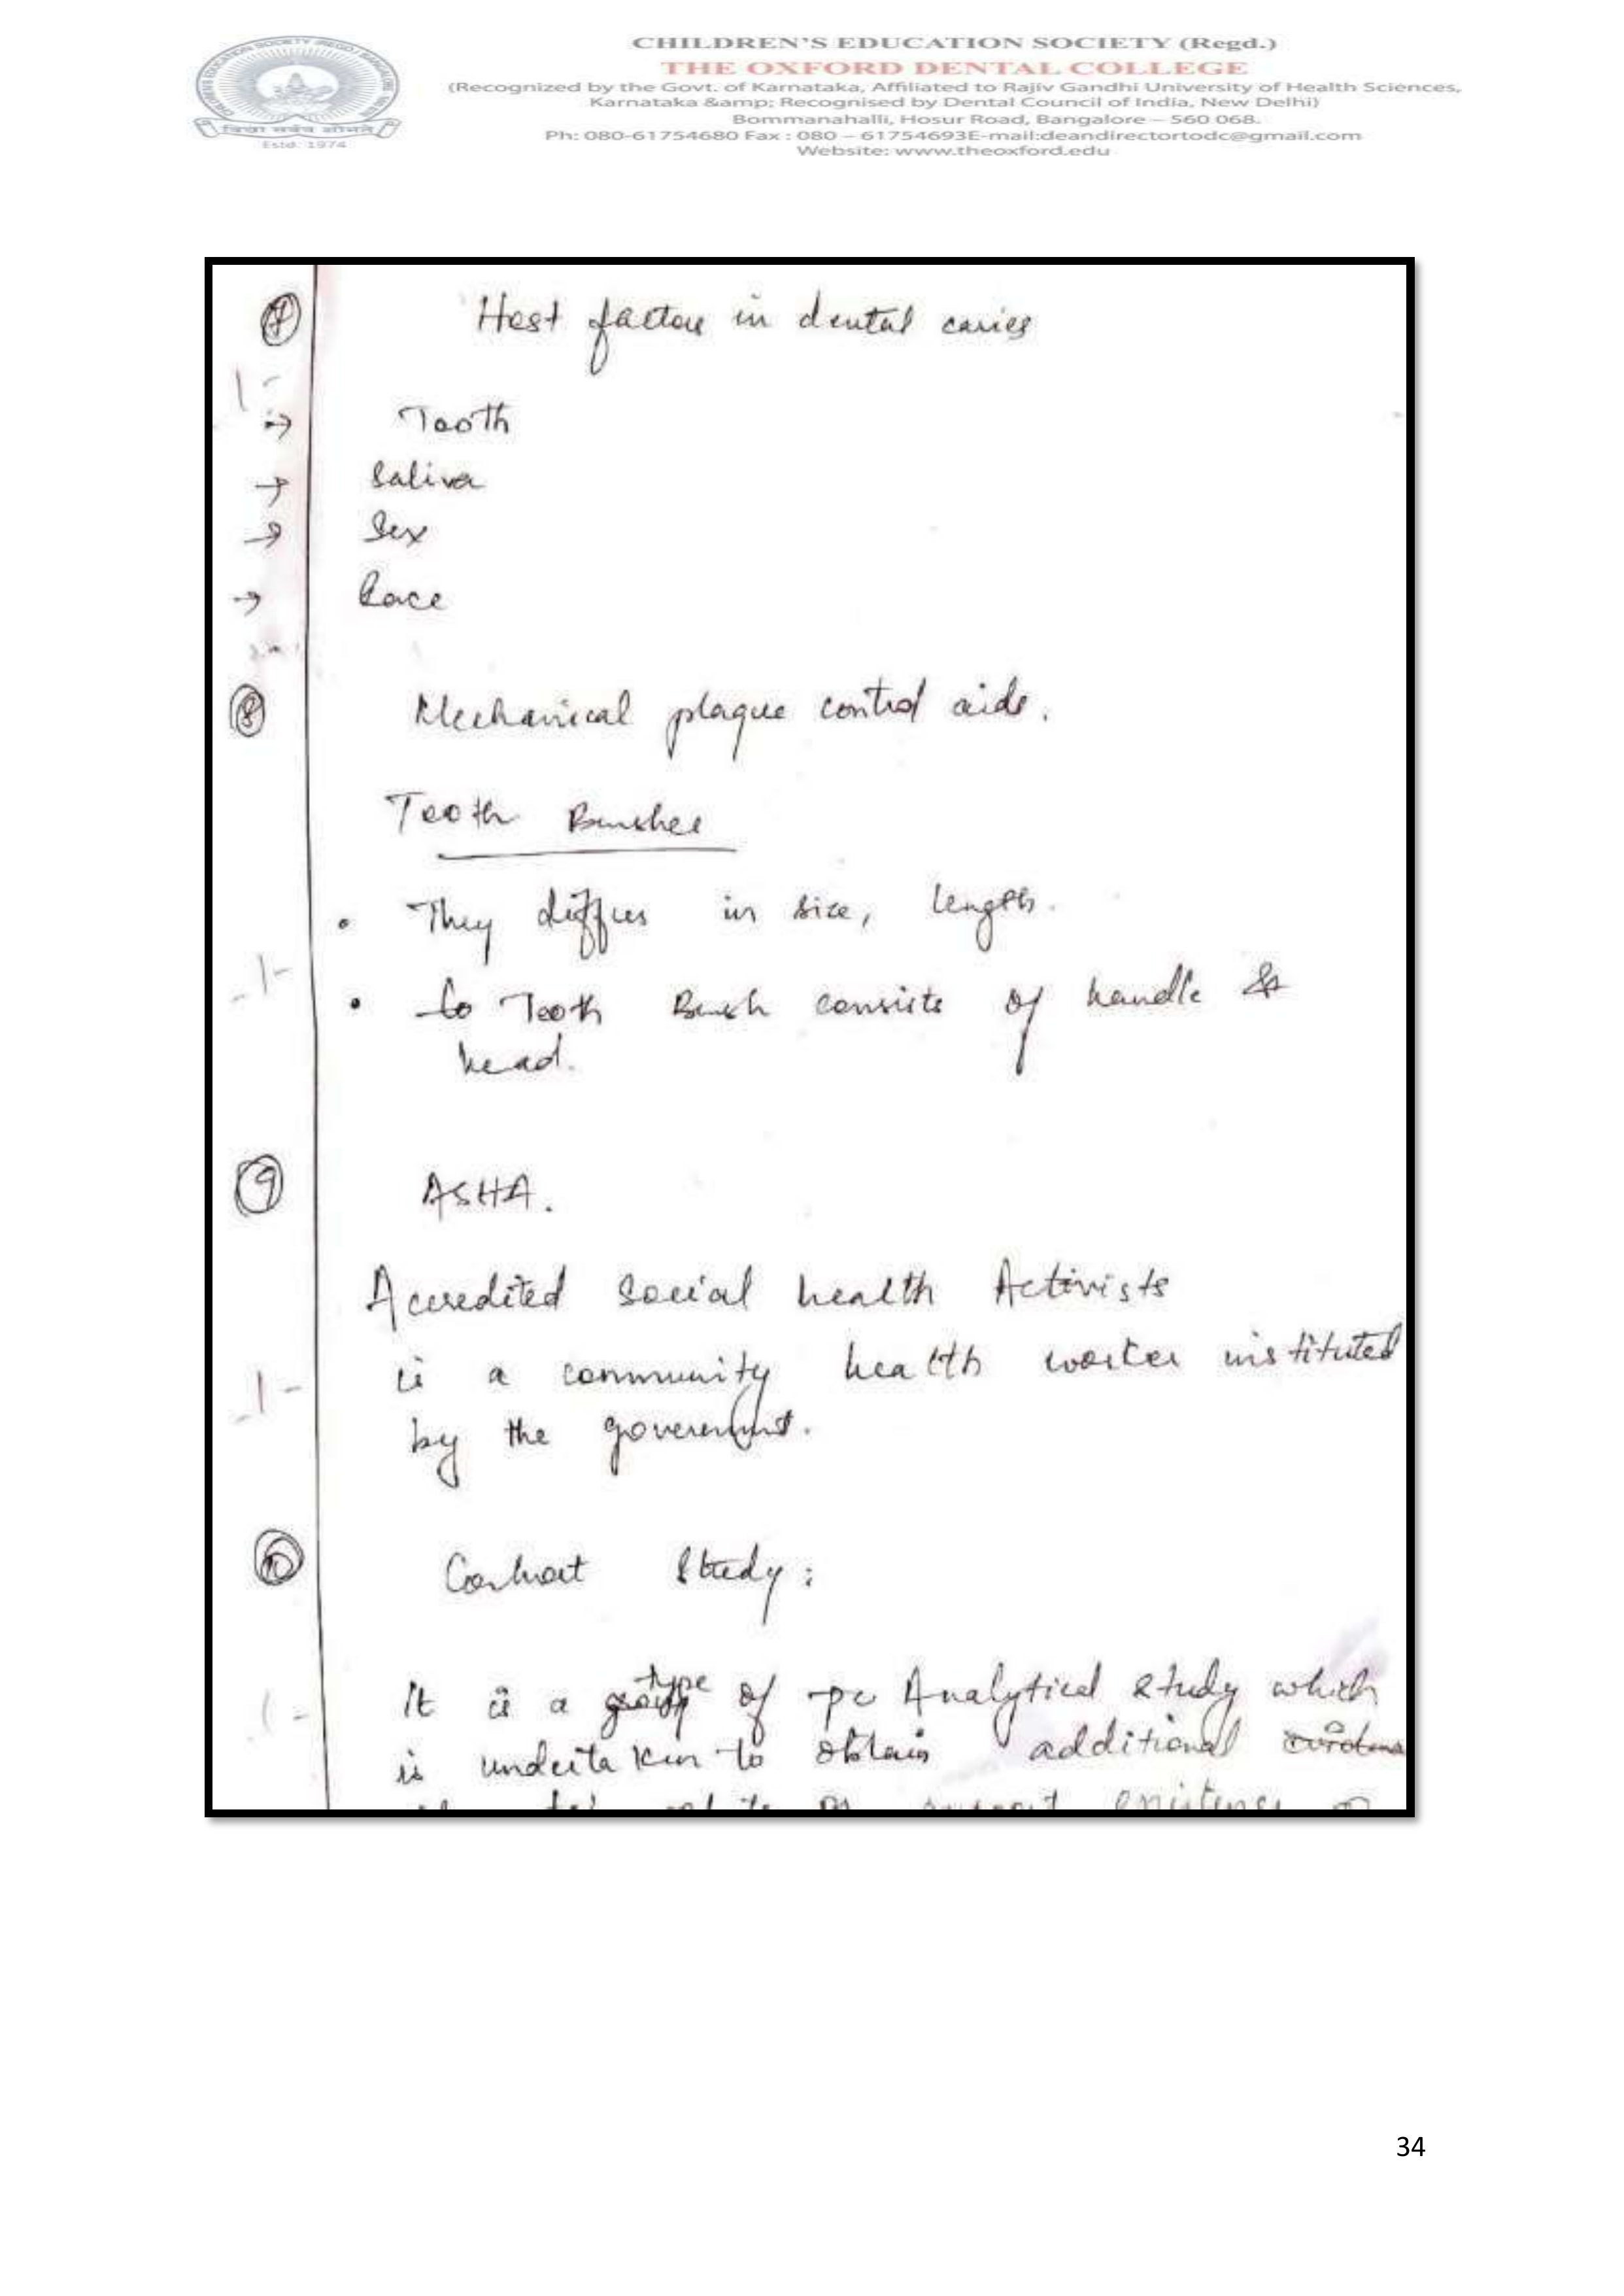 CHILDREN'S EDUCATION SOCIETY (Regd.)
THE OXFORD DENTAL COLLEGE
(Recognized by the Govt. of Karnataka, Affiliated to Rajiv Gandhi University of Health Sciences,
Karnataka &amp; Recognised by Dental Council of India, New Delhi)
Bommanahalli, Hosur Road, Bangalore – 560 068.
Ph: 080-61754680 Fax : 080 – 61754693E-mail:deandirectortodc@gmail.com
Website: www.theoxford.edu
Estd. 1974
7 Host factors in dental caries
1-
→ Tooth
→ Saliva
→ Sex
→ Race
8 Mechanical plaque control aids.
Tooth Brushes
• They differs in size, length.
-1-
• to Tooth Brush consists of handle &
head.
9 ASHA.
Accredited Social health Activists
is a community health worker instituted
-1-
by the government.
10 Corhort Study:
It is a type of Analytical study which
1-
is undertaken to obtain additional
existence
34